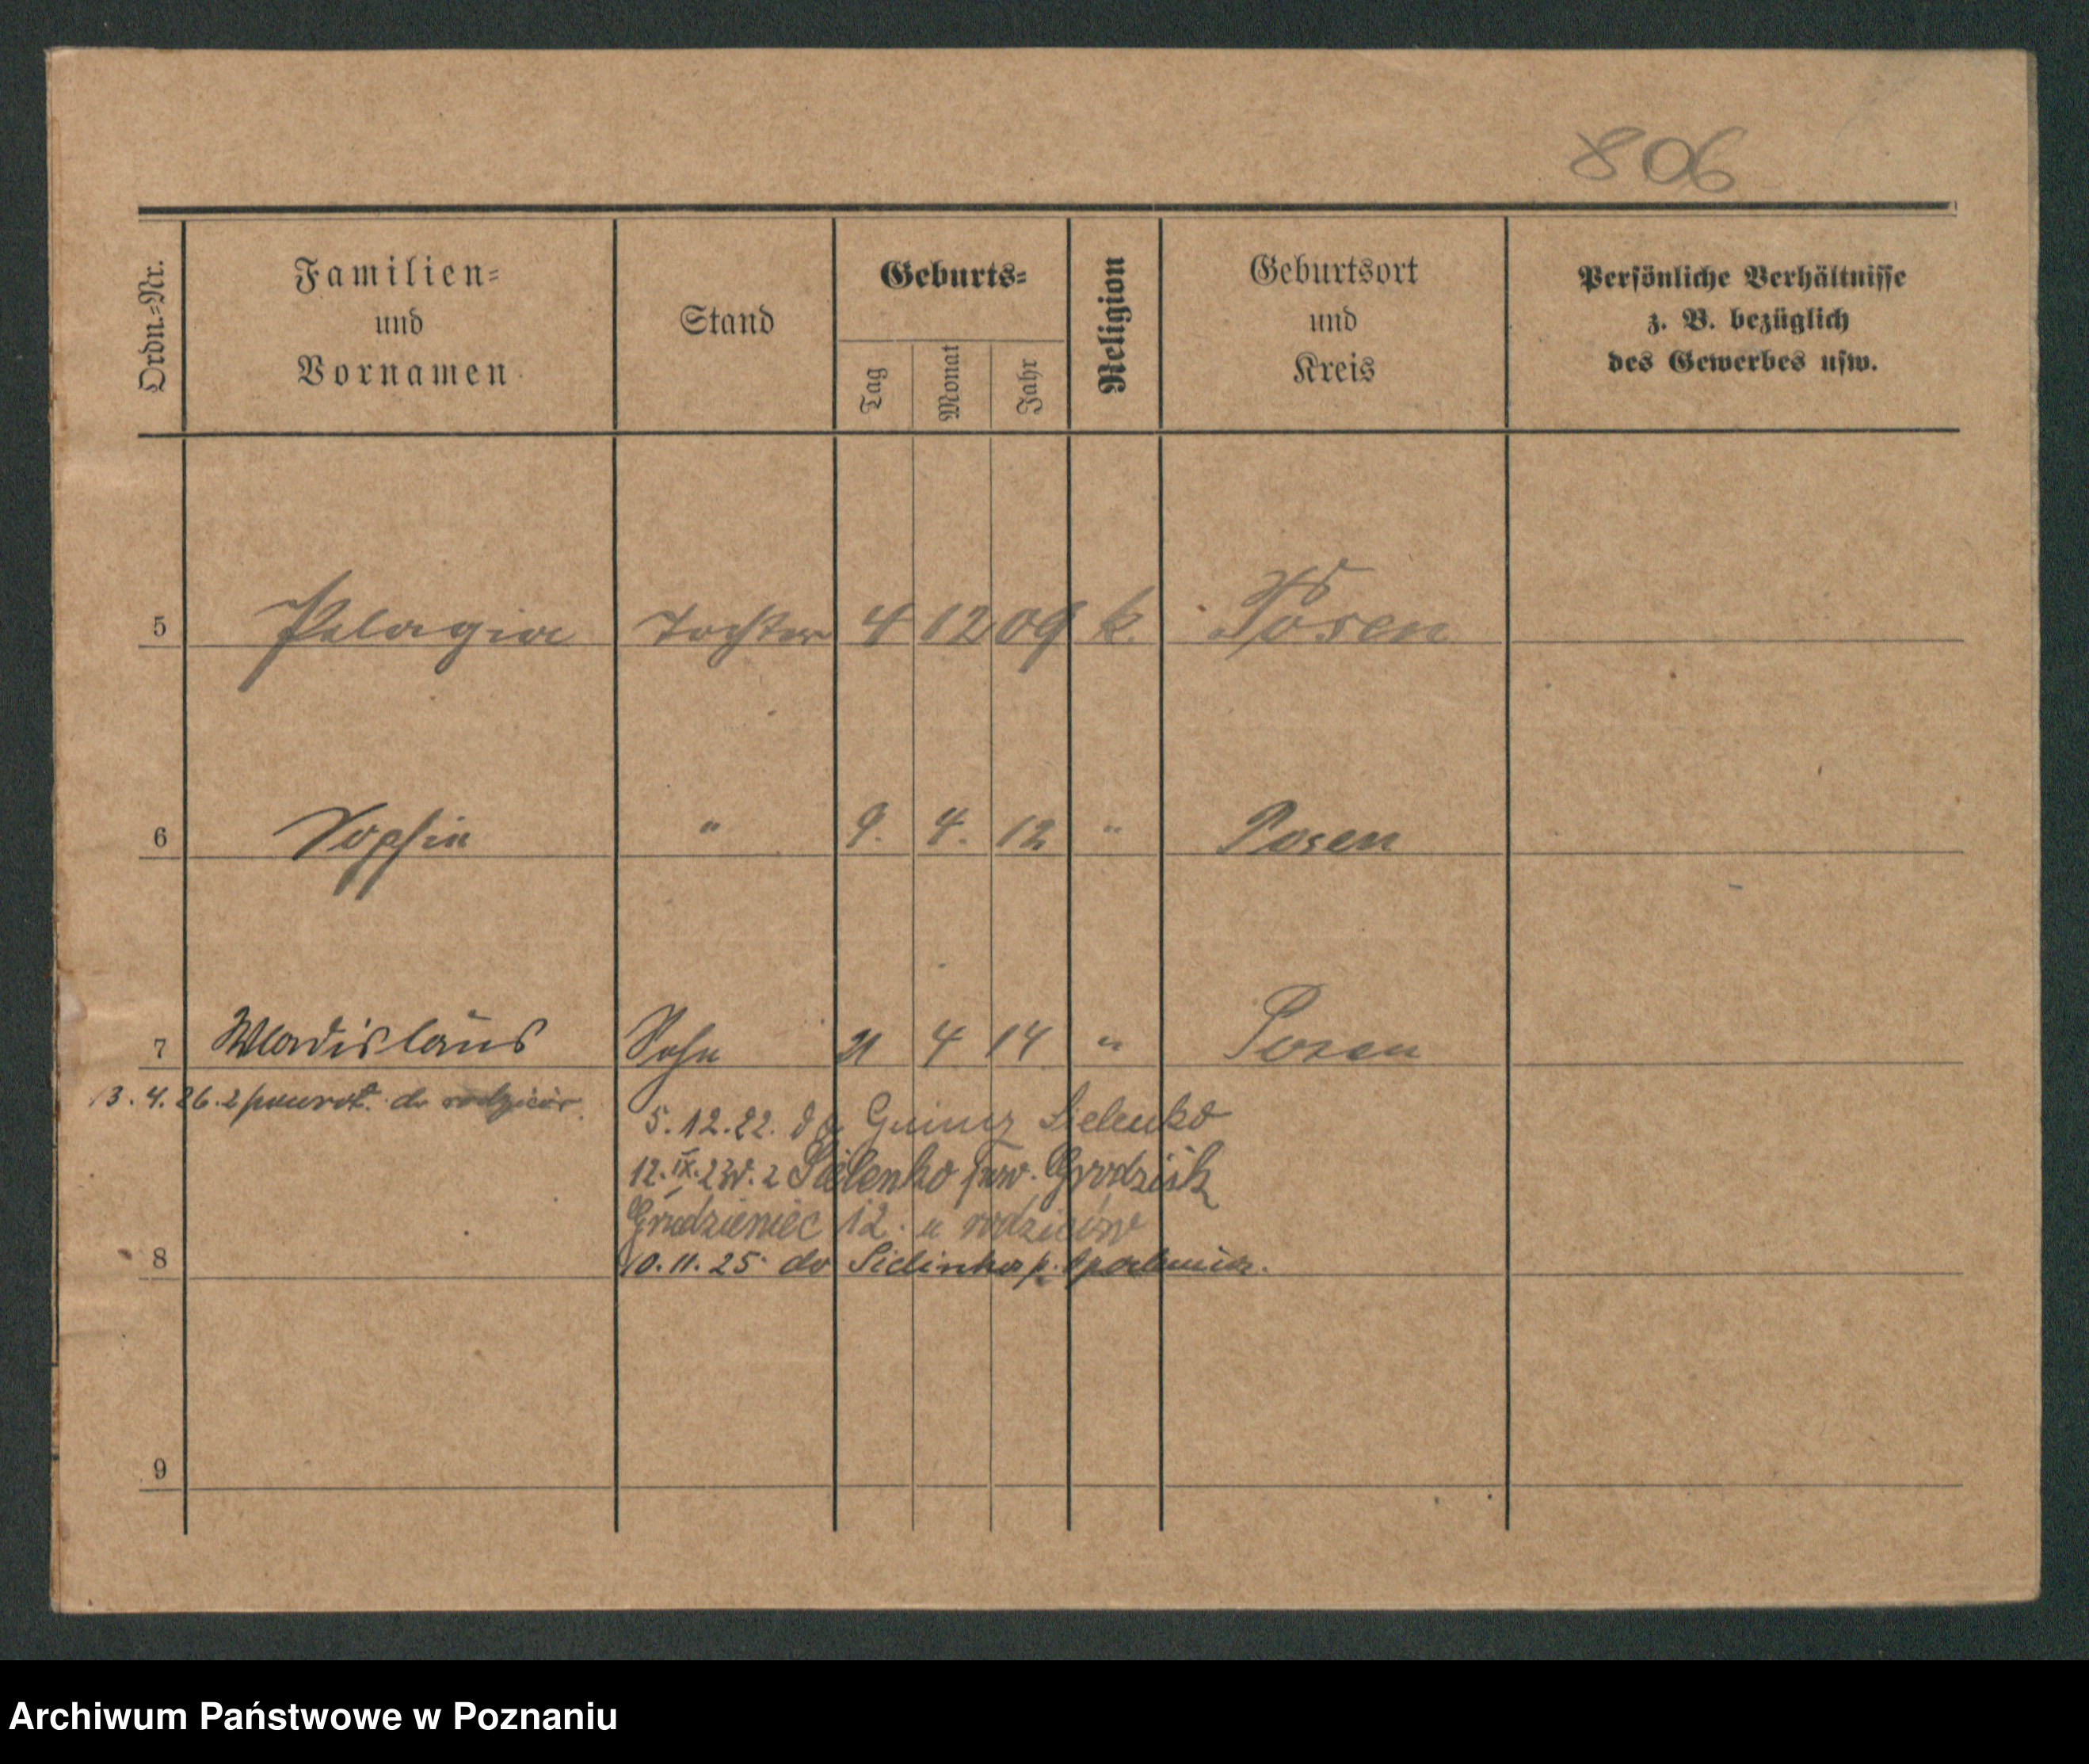 806
Ordn.-Nr.
Familien-
und
Vornamen
Stand
Geburts-
Tag
Monat
Jahr
Religion
Geburtsort
und
Kreis
Persönliche Verhältnisse
z. B. bezüglich
des Gewerbes usw.
5 Pelagia Tochter 4 12 09 k. Posen
6 Sophie " 9. 4. 12 " Posen
7 Wladislaus Sohn 21 4 14 " Posen
13. 4. 26. z powrot. do rodziców.
5. 12. 22. do Sielenko
12. IX. 23 r. z Sielenko pow. Grodzisk
Grudzieniec 12. u rodziców
8
10. 11. 25 do Sielinka p. Opalenica.
9
Archiwum Państwowe w Poznaniu